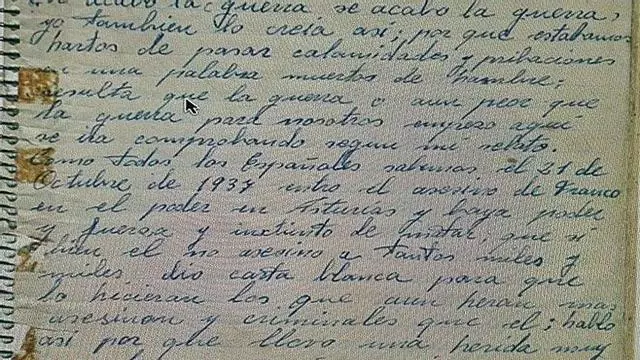 se acabo la guerra se acabo la guerra,
yo tambien lo creia asi; por que estabamos
hartos de pasar calamidades y pribaciones
en una palabra muertos de hambre;
resulta que la guerra o aun peor que
la guerra para nosotros empezo aqui
se ira comprobando segun mi relato.
Como todos los Españoles sabemos, el 21 de
Octubre de 1937 entro el asesino de Franco
en el poder en Asturias y baya poder
y fuerza y instinto de matar, que si
bien el no asesino a tantos miles y
miles dio carta blanca para que
lo hicieran los que aun heran mas
asesinos y criminales que el; hablo
asi por que llevo una herida muy